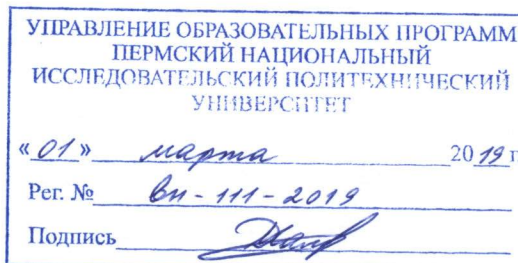 УПРАВЛЕНИЕ ОБРАЗОВАТЕЛЬНЫХ ПРОГРАММ
ПЕРМСКИЙ НАЦИОНАЛЬНЫЙ
ИССЛЕДОВАТЕЛЬСКИЙ ПОЛИТЕХНИЧЕСКИЙ
УНИВЕРСИТЕТ
«01» марта 2019 г
Рег. № вп-111-2019
Подпись